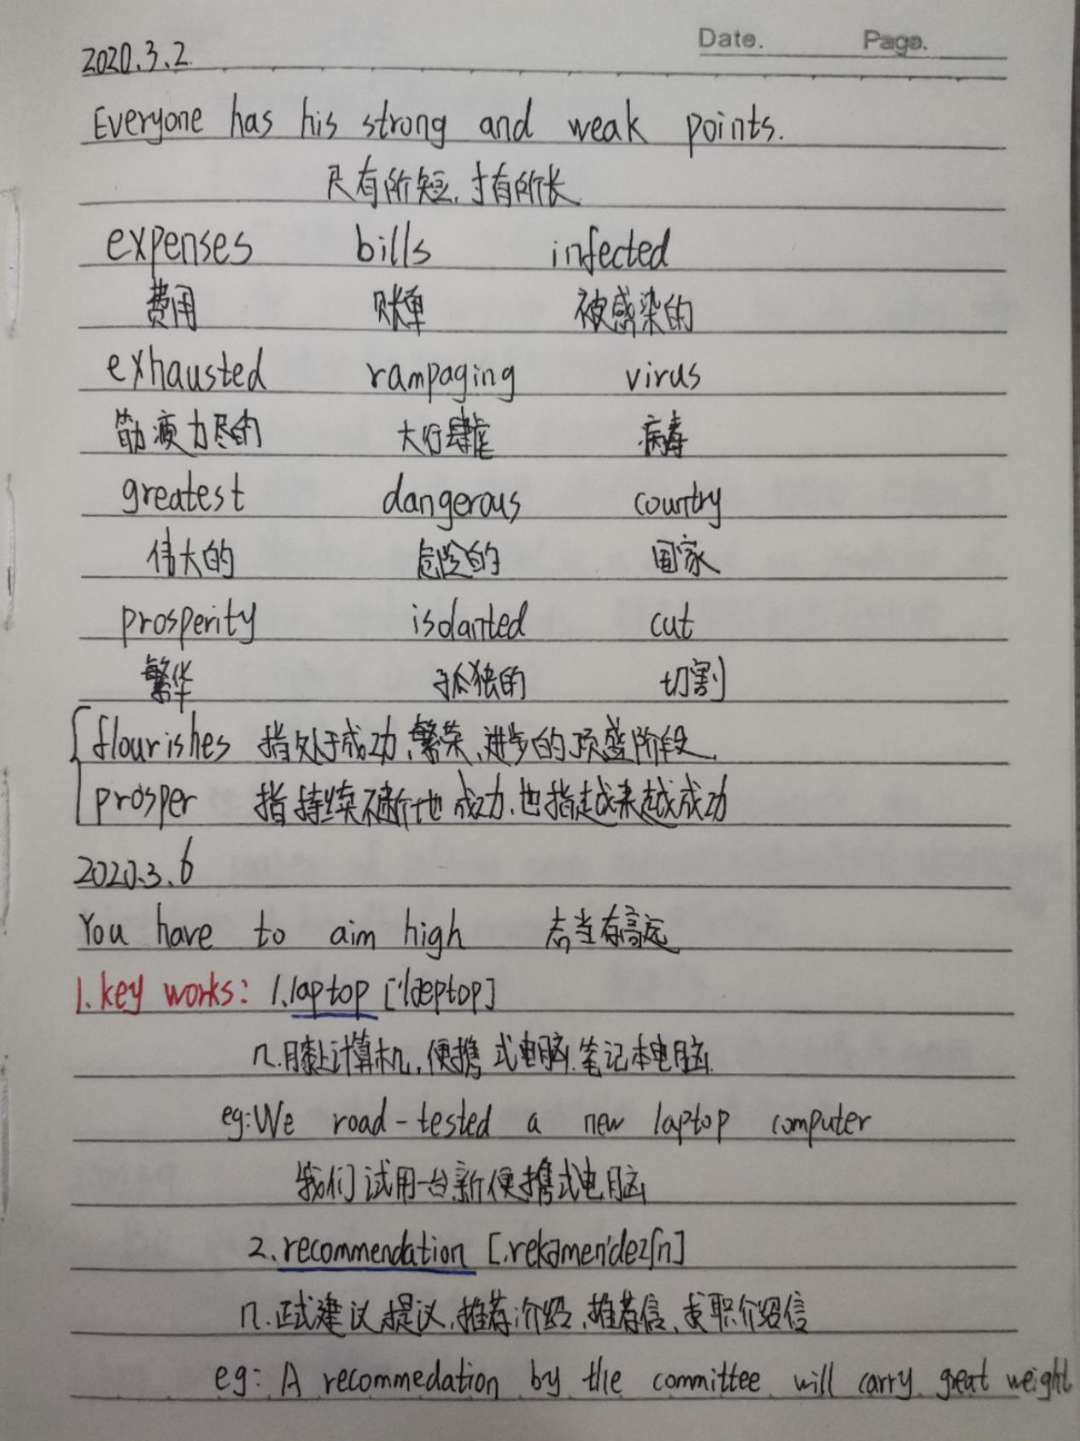 Date. Page.
2020.3.2
Everyone has his strong and weak points.
尺有所短,寸有所长
expenses bills infected
费用 账单 被感染的
exhausted rampaging virus
筋疲力尽的 大行肆虐 病毒
greatest dangerous country
伟大的 危险的 国家
prosperity isolanted cut
繁华 孤独的 切割
flourishes 指处于成功、繁荣、进步的顶盛阶段
prosper 指持续不断地成功,也指越来越成功
2020.3.6
You have to aim high 志当存高远
1.key works: 1.laptop ['læptop]
n.膝上计算机,便携式电脑.笔记本电脑.
eg:We road-tested a new laptop computer
我们试用一台新便携式电脑
2.recommendation [.rekəmen'deɪʃn]
n.正式建议,提议,推荐;介绍,推荐信,求职介绍信
eg: A recommedation by the committee will carry great weight